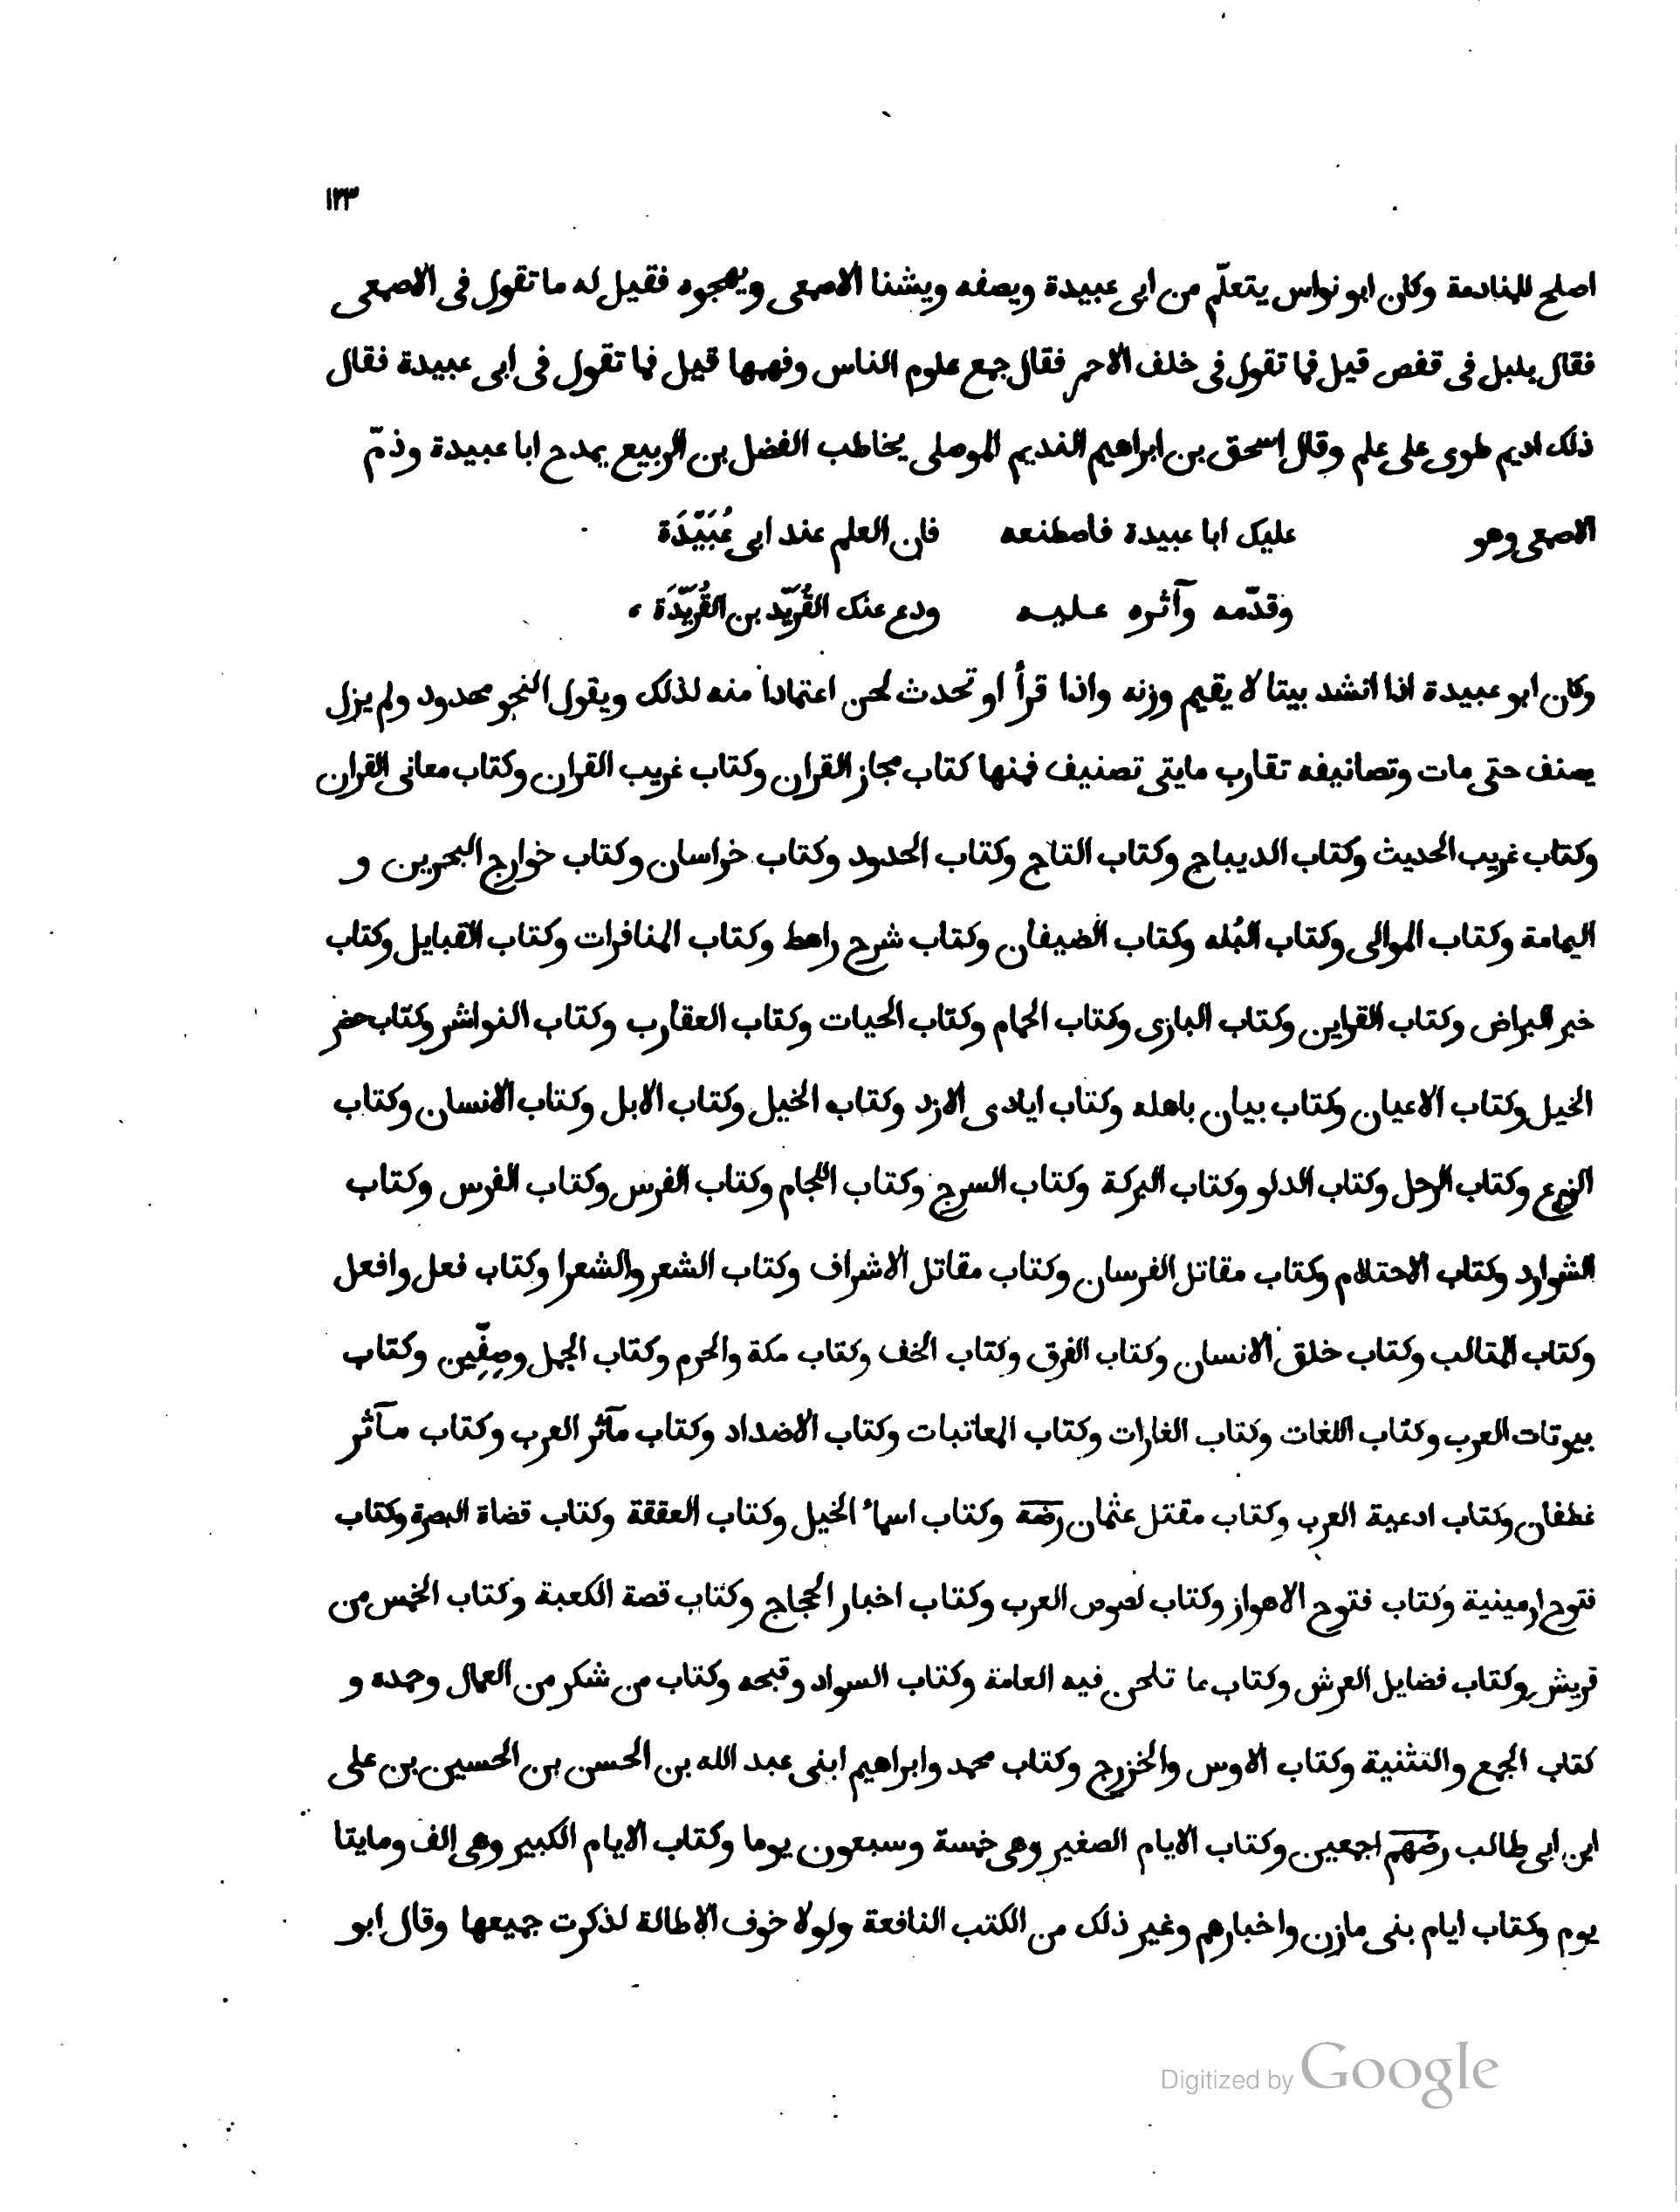 ١٢٣
اصلح للمنادمة وكان ابو نواس يتعلّم من ابى عبيدة ويصفه ويشنا الاصمعى ويهجوه فقيل له ما تقول فى الاصمعى
فقال بلبل فى قفص قيل فما تقول فى خلف الاحمر فقال جمع علوم الناس وفهمها قيل فما تقول فى ابى عبيدة فقال
ذلك اديم طوى على علم وقال اسحق بن ابراهيم النديم الموصلى يخاطب الفضل بن الربيع يمدح ابا عبيدة وذمّ
الاصمعى وهو عليك ابا عبيدة فاصطنعه فان العلم عند ابى عُبَيّدَة
وقدّمه وآثره عليه ودع عنك القُرَيّد بن القُرَيّدَة ،
وكان ابو عبيدة اذا انشد بيتا لا يقيم وزنه واذا قرأ او تحدث لحن اعتمادا منه لذلك ويقول النحو محدود ولم يزل
يصنف حتى مات وتصانيفه تقارب مايتى تصنيف فمنها كتاب مجاز القران وكتاب غريب القران وكتاب معانى القران
وكتاب غريب الحديث وكتاب الديباج وكتاب التاج وكتاب الحدود وكتاب خراسان وكتاب خوارج البحرين و
اليمامة وكتاب الموالى وكتاب البُله وكتاب الضيفان وكتاب شرح راهط وكتاب المنافرات وكتاب القبايل وكتاب
خبر البراض وكتاب القراين وكتاب البازى وكتاب الحمام وكتاب الحيات وكتاب العقارب وكتاب النواشر وكتاب حضر
الخيل وكتاب الاعيان وكتاب بيان باهله وكتاب ايادى الازد وكتاب الخيل وكتاب الابل وكتاب الانسان وكتاب
الزرع وكتاب الرحل وكتاب الدلو وكتاب البركة وكتاب السرج وكتاب اللجام وكتاب الفرس وكتاب الفرس وكتاب
الشوارد وكتاب الاحتلام وكتاب مقاتل الفرسان وكتاب مقاتل الاشراف وكتاب الشعر والشعرا وكتاب فعل وافعل
وكتاب المثالب وكتاب خلق الانسان وكتاب الفرق وكتاب الخف وكتاب مكة والحرم وكتاب الجمل وصِفّين وكتاب
بيوتات العرب وكتاب اللغات وكتاب الغارات وكتاب المعاتبات وكتاب الاضداد وكتاب مآثر العرب وكتاب مآثر
غطفان وكتاب ادعية العرب وكتاب مقتل عثمان رضه وكتاب اسماء الخيل وكتاب العققة وكتاب قضاة البصرة وكتاب
فتوح ارمينية وكتاب فتوح الاهواز وكتاب لصوص العرب وكتاب اخبار الحجاج وكتاب قصة الكعبة وكتاب الخمس من
قريش وكتاب فضايل العرش وكتاب ما تلحن فيه العامة وكتاب السواد وقبحه وكتاب من شكر من العمال وحمده و
كتاب الجمع والتثنية وكتاب الاوس والخزرج وكتاب محمد وابراهيم ابنى عبد الله بن الحسن بن الحسين بن على
ابن ابى طالب رضهم اجمعين وكتاب الايام الصغير وهى خمسة وسبعون يوما وكتاب الايام الكبير وهى الف ومايتا
يوم وكتاب ايام بنى مازن واخبارهم وغير ذلك من الكتب النافعة ولولا خوف الاطالة لذكرت جميعها وقال ابو
Digitized by Google